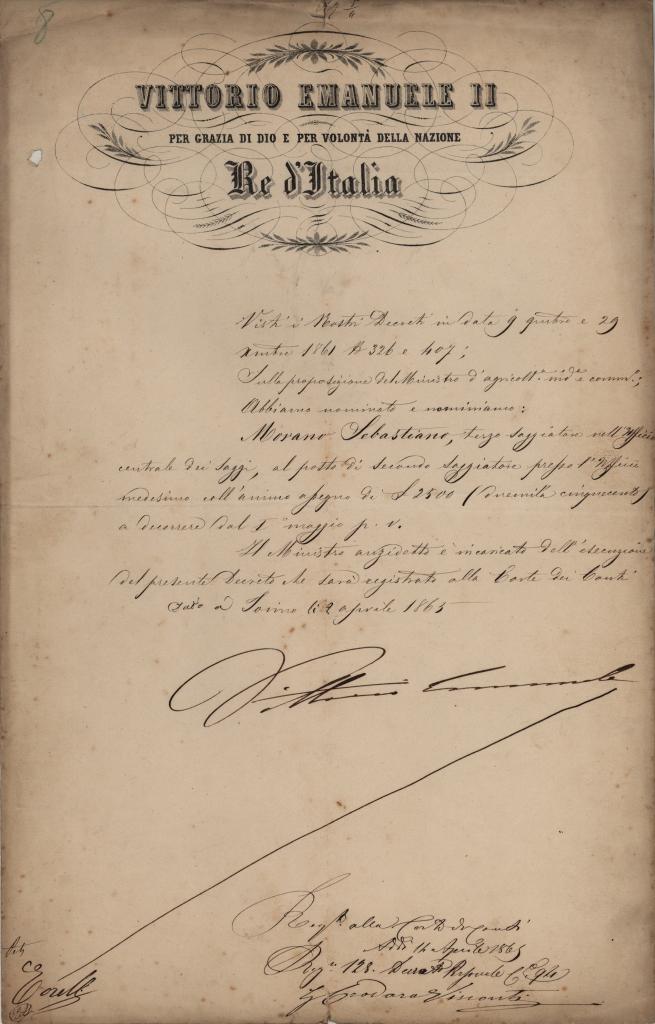 8
VITTORIO EMANUELE II
PER GRAZIA DI DIO E PER VOLONTÀ DELLA NAZIONE
Re d'Italia
Visti i Nostri Decreti in data 9 e 29
1861 N 326 e 407;
Sulla proposizione del Ministro d'agricolt.a ind.a e comm.;
Abbiamo nominato e nominiamo:
Morano Sebastiano, terzo saggiatore nell'Ufficio
centrale dei saggi, al posto di secondo saggiatore presso l'Ufficio
medesimo coll'annuo assegno di £ 2500 (duemila cinquecento)
a decorrere dal 1° maggio p. v.
Il Ministro anzidetto è incaricato dell'esecuzione
del presente Decreto che sarà registrato alla Corte dei Conti
Dato a Torino li 2 aprile 1865
Vittorio Emanuele
Reg.to alla Corte dei conti
Addì 14 Aprile 1865
Reg.o 128. Decreti Personale
Visconti
Torelli